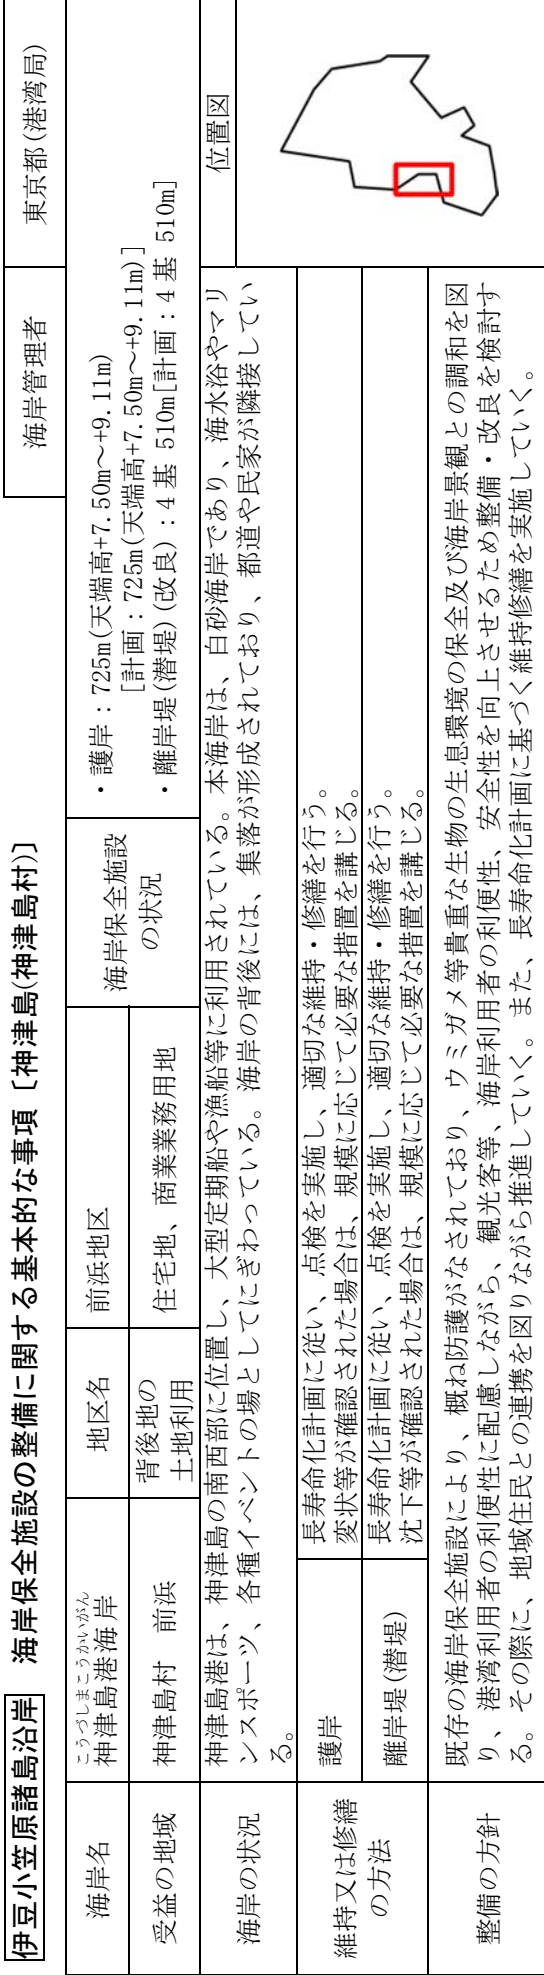 伊豆小笠原諸島沿岸 海岸保全施設の整備に関する基本的な事項［神津島(神津島村)］
海岸管理者
東京都(港湾局)
海岸名
こうづしまこうかいがん
神津島港海岸
地区名
前浜地区
海岸保全施設
の状況
・護岸：725m(天端高+7.50m～+9.11m)
[計画：725m(天端高+7.50m～+9.11m)]
・離岸堤(潜堤)(改良)：4基 510m[計画：4基 510m]
受益の地域
神津島村 前浜
背後地の
土地利用
住宅地、商業業務用地
海岸の状況
神津島港は、神津島の南西部に位置し、大型定期船や漁船等に利用されている。本海岸は、白砂海岸であり、海水浴やマリ
ンスポーツ、各種イベントの場としてにぎわっている。海岸の背後には、集落が形成されており、都道や民家が隣接してい
る。
位置図
維持又は修繕
の方法
護岸
長寿命化計画に従い、点検を実施し、適切な維持・修繕を行う。
変状等が確認された場合は、規模に応じて必要な措置を講じる。
離岸堤(潜堤)
長寿命化計画に従い、点検を実施し、適切な維持・修繕を行う。
沈下等が確認された場合は、規模に応じて必要な措置を講じる。
整備の方針
既存の海岸保全施設により、概ね防護がなされており、ウミガメ等貴重な生物の生息環境の保全及び海岸景観との調和を図
り、港湾利用者の利便性に配慮しながら、観光客等、海岸利用者の利便性、安全性を向上させるため整備・改良を検討す
る。その際に、地域住民との連携を図りながら推進していく。また、長寿命化計画に基づく維持修繕を実施していく。